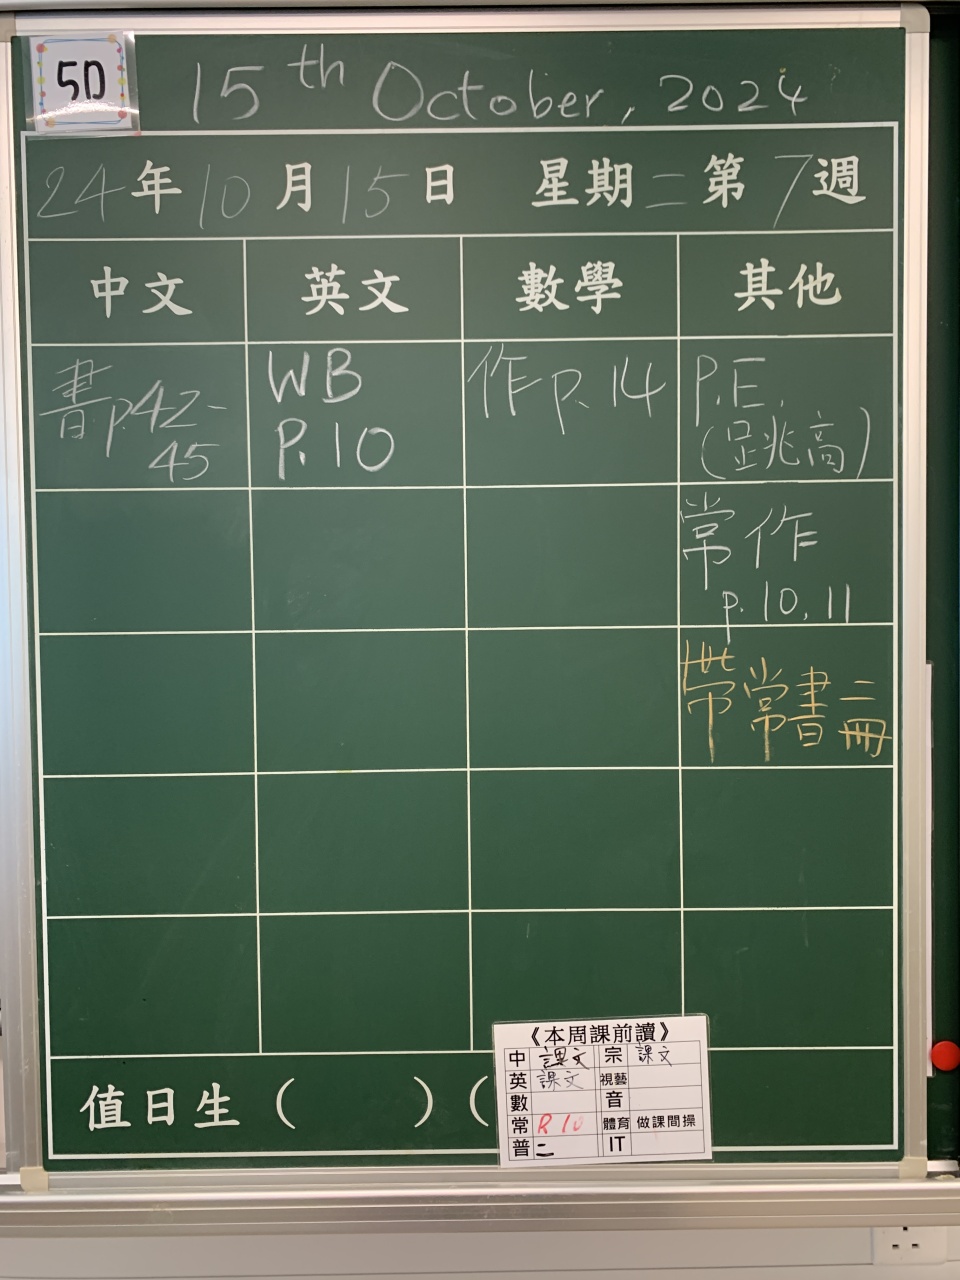 5D
15th October, 2024
24年10月15日 星期二 第7週
中文 英文 數學 其他
書p.42-
45
WB
P.10
作p.14
P.E.
(跳高)
常作
p.10,11
帶常書二冊
值日生( )(
《本周課前讀》
中 課文 宗 課文
英 課文 視藝
數 音
常 P.10 體育 做課間操
普 二 IT